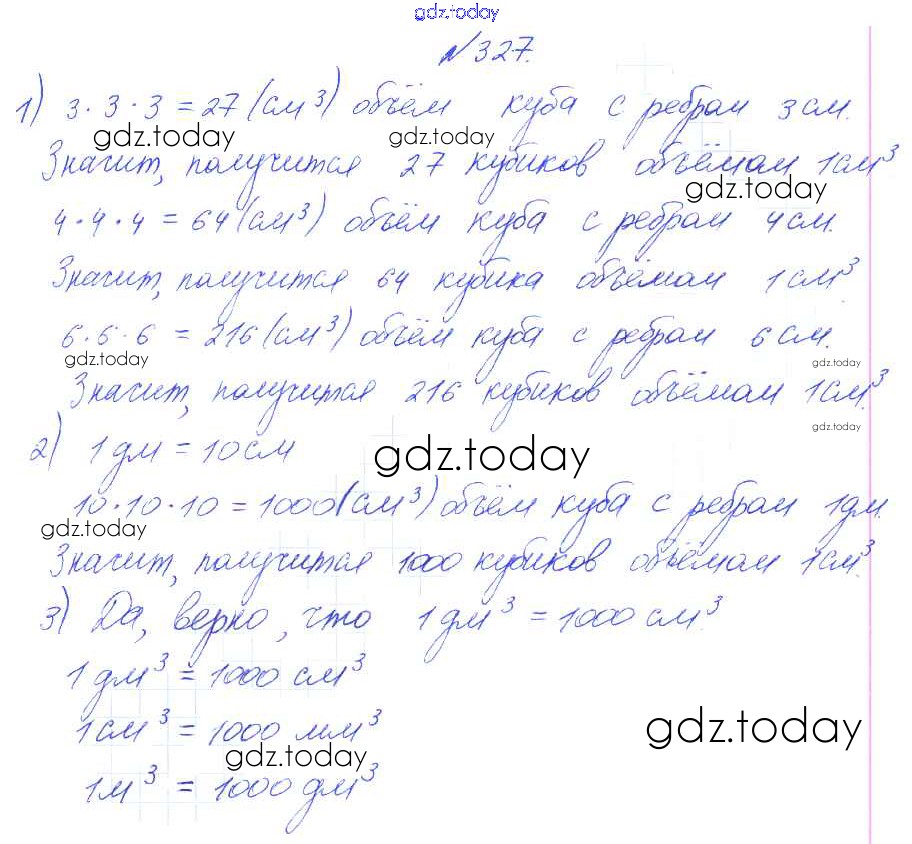 gdz.today
№327.
1) 3·3·3 = 27 (см³) объём куба с ребром 3 см.
gdz.today gdz.today
Значит, получится 27 кубиков объёмом 1 см³
gdz.today
4·4·4 = 64 (см³) объём куба с ребром 4 см.
Значит, получится 64 кубика объёмом 1 см³
6·6·6 = 216 (см³) объём куба с ребром 6 см.
gdz.today gdz.today
Значит, получится 216 кубиков объёмом 1 см³.
gdz.today
2) 1 дм = 10 см
gdz.today
10·10·10 = 1000 (см³) объём куба с ребром 1 дм.
gdz.today
Значит, получится 1000 кубиков объёмом 1 см³.
3) Да, верно, что 1 дм³ = 1000 см³.
1 дм³ = 1000 см³
1 см³ = 1000 мм³
gdz.today
gdz.today
1 м³ = 1000 дм³